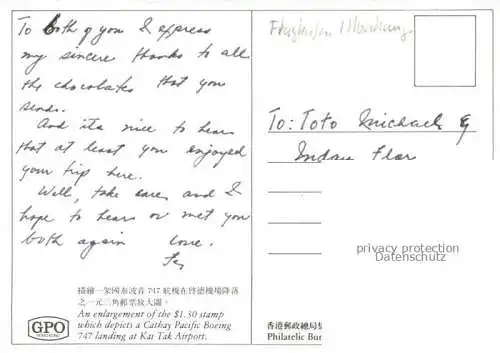 To both of you I express
my sincere thanks to all
the chocolates that you
send.
And its nice to hear
that at least you enjoyed
your trip here.
Well, take care, and I
hope to hear or met you
both again love.
描繪一架國泰波音 747 航機在啓德機場降落
之一元三角郵票放大圖。
An enlargement of the $1.30 stamp
which depicts a Cathay Pacific Boeing
747 landing at Kai Tak Airport.
GPO
To: Toto Michael &
privacy protection
Datenschutz
香港郵政總局
Philatelic Bur